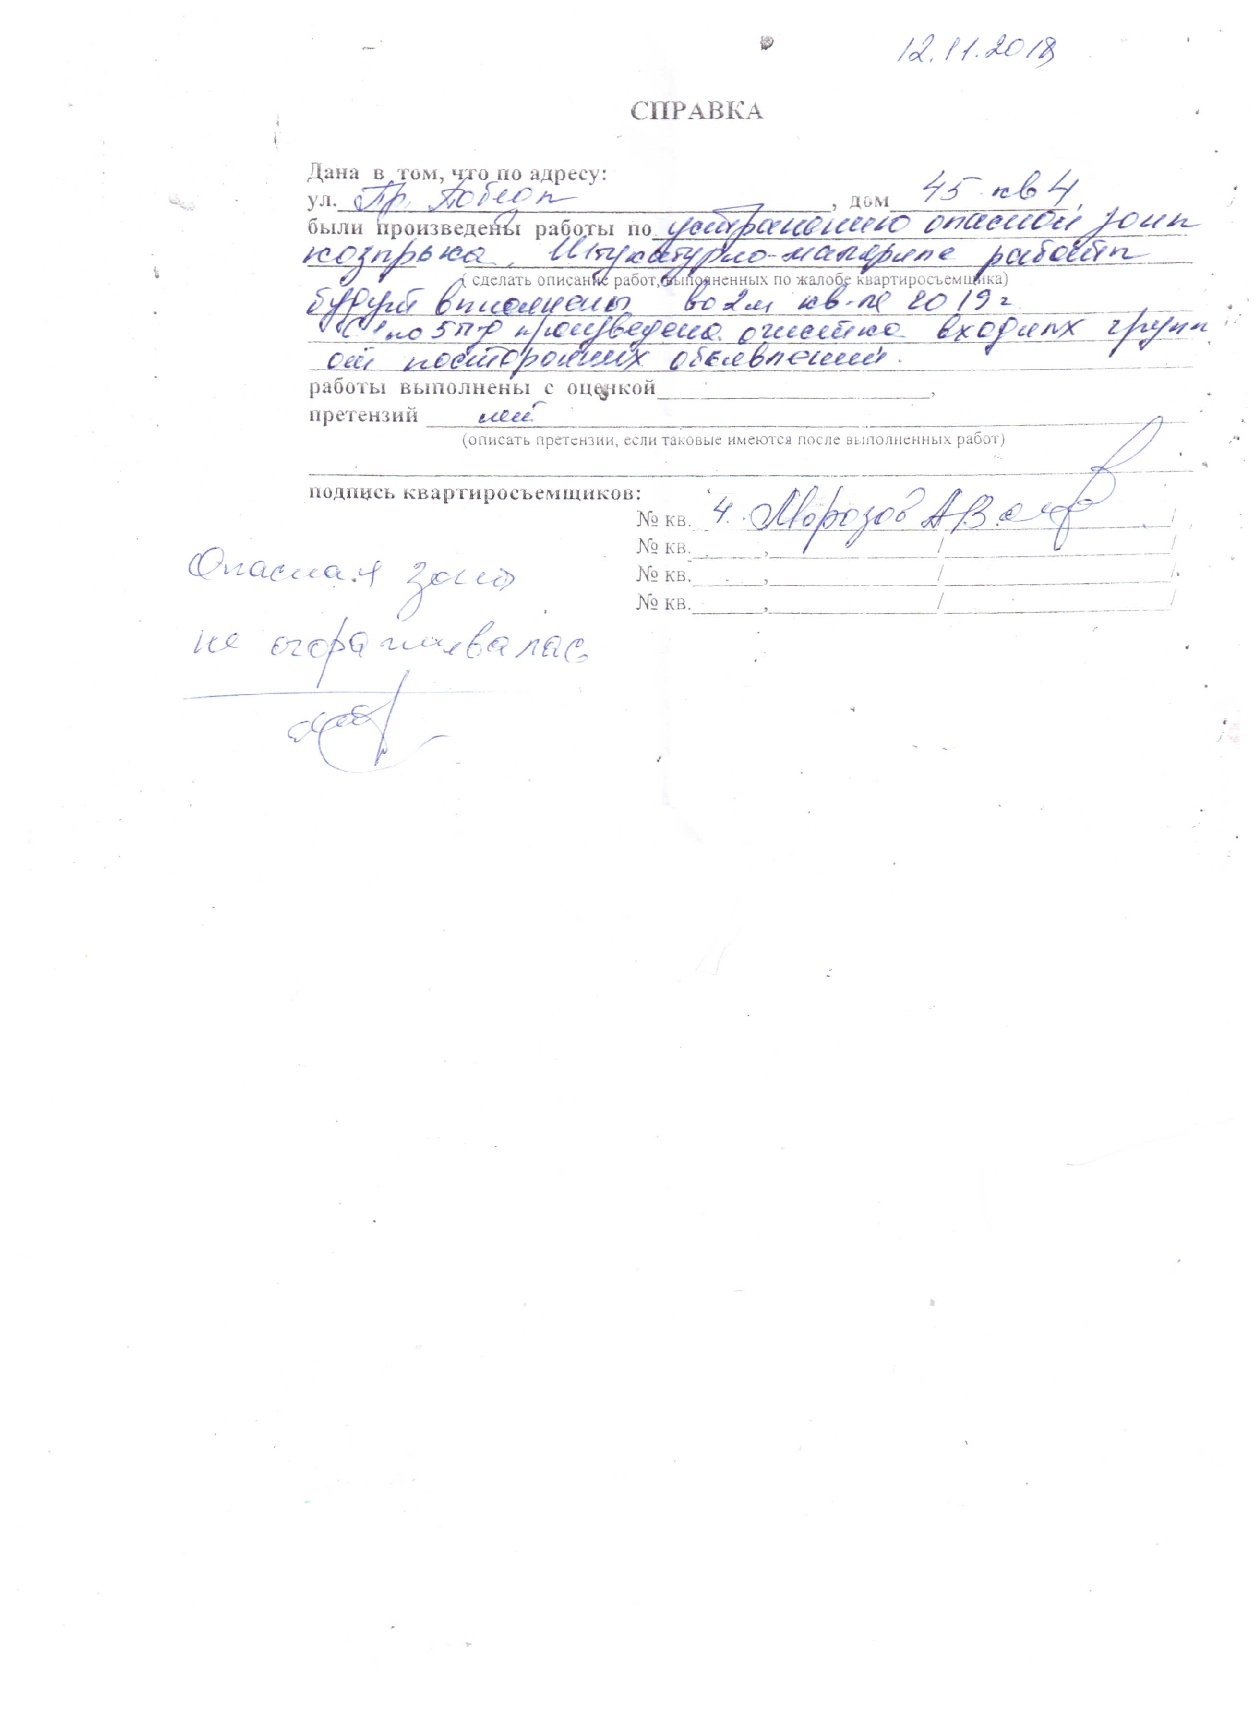 12.11.2018
СПРАВКА
Дана в том, что по адресу:
ул. Пр. Победы, дом 45 кв 4,
были произведены работы по устранению опасной зоны
козырька, Штукатурно-малярные работы
( сделать описание работ, выполненных по жалобе квартиросъемщика)
будут выполнены во 2м кв-ле 2019г
С 1 по 5 п-д произведена очистка входных групп
от посторонних объявлений.
работы выполнены с оценкой ,
претензий нет
(описать претензии, если таковые имеются после выполненных работ)
подпись квартиросъемщиков:
№ кв. 4. Морозов А.В. /
№ кв. , / /
№ кв. , / /
№ кв. , / /
Опасная зона
не огораживалас